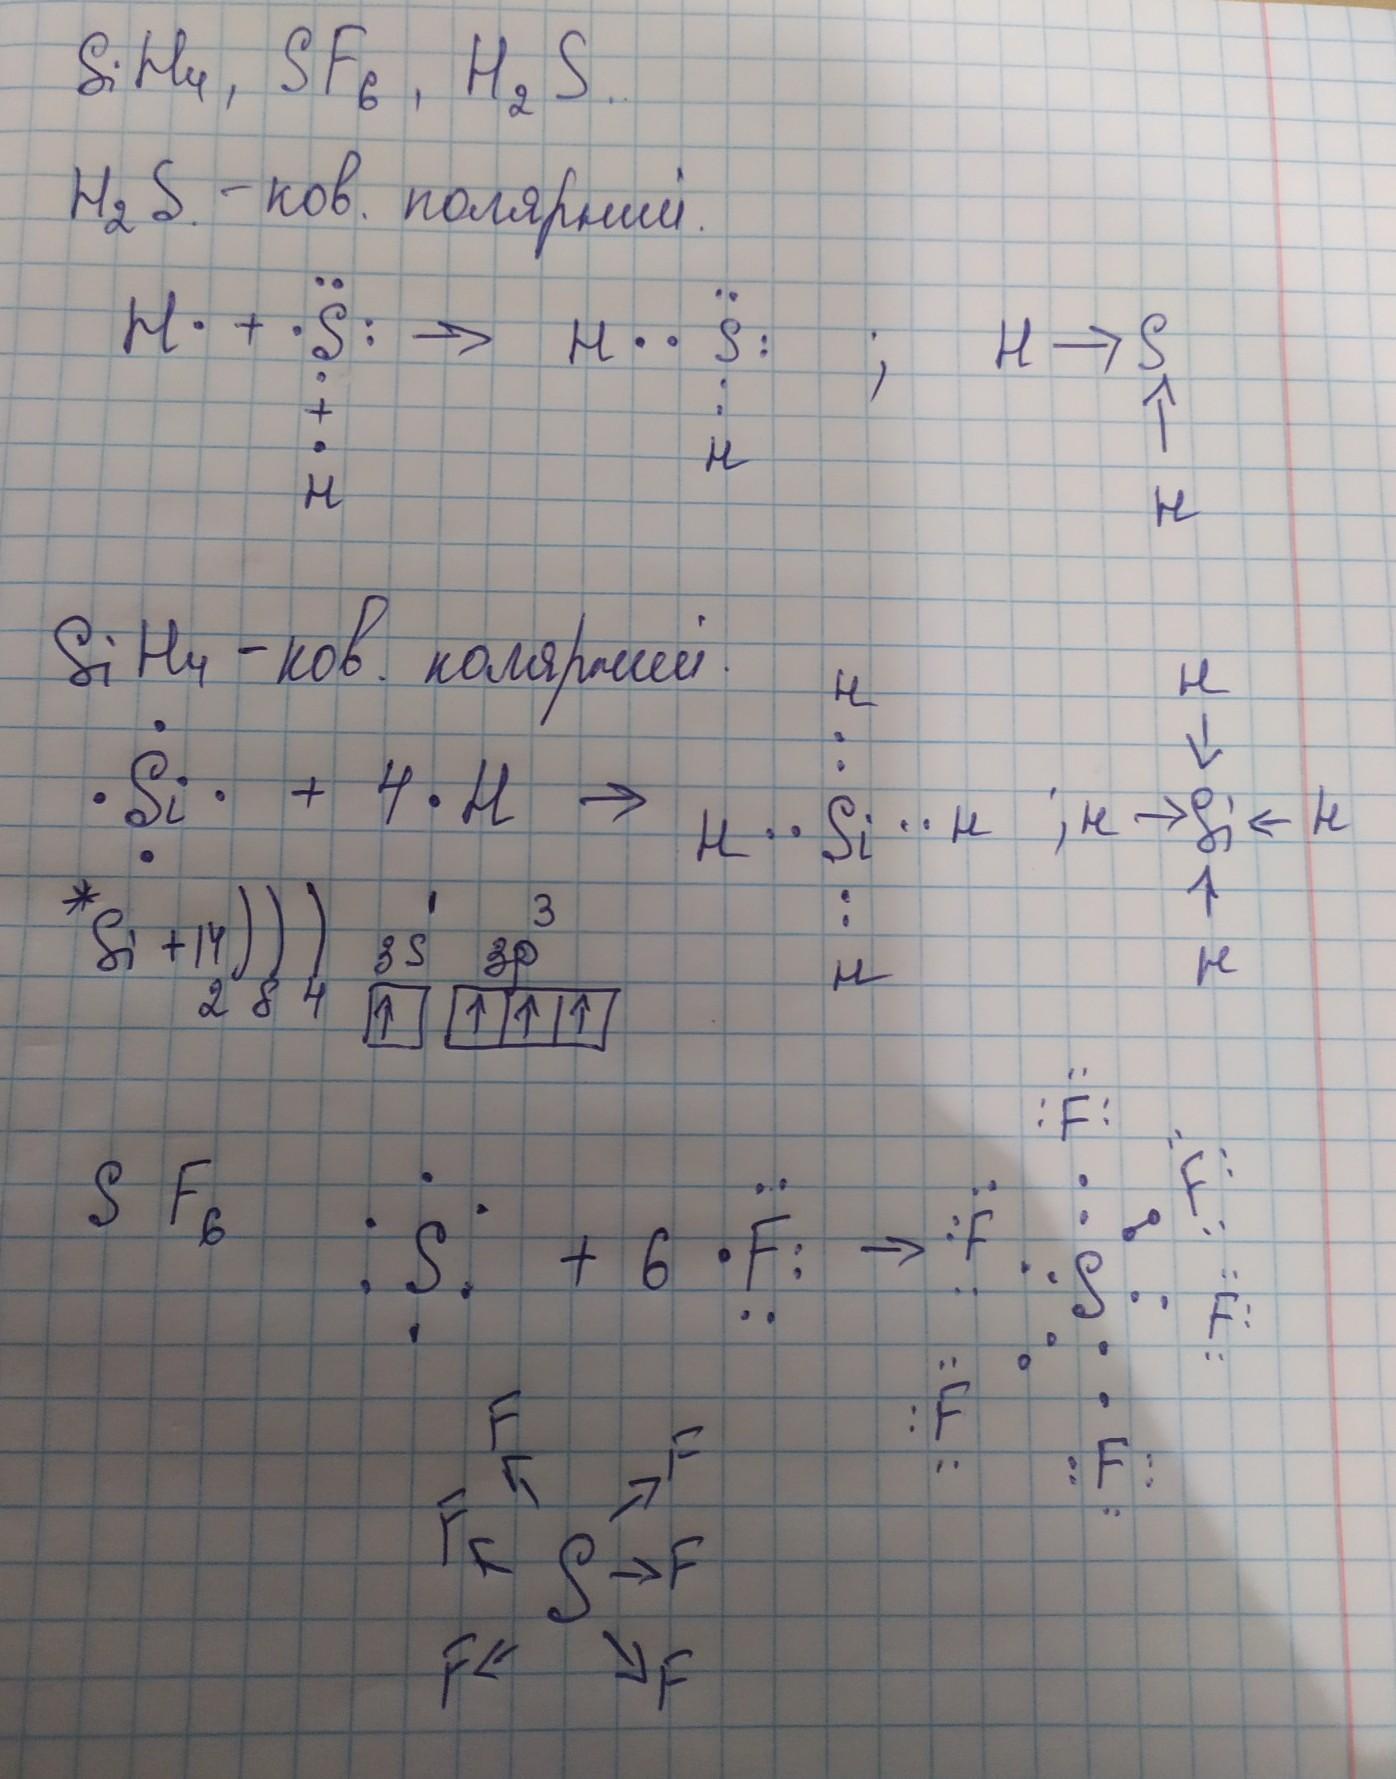 SiH4, SF6, H2S.
H2S. - ков. полярний.
H· + ·S̈: → H·· S̈: ; H → S
·
+
·
H
:
H
↑
H
SiH4 - ков. полярний.
·Si· + 4·H → H··Si··H ; H → Si ← H
H
:
:
H
H
↓
↑
H
*Si +14 ) ) )
2 8 4
3s¹ 3p³
↑ ↑ ↑ ↑
SF6 ·S· + 6 ·F: → S
:F: :F :F: F: :F :F:
F F
F ← S → F
F ← → F